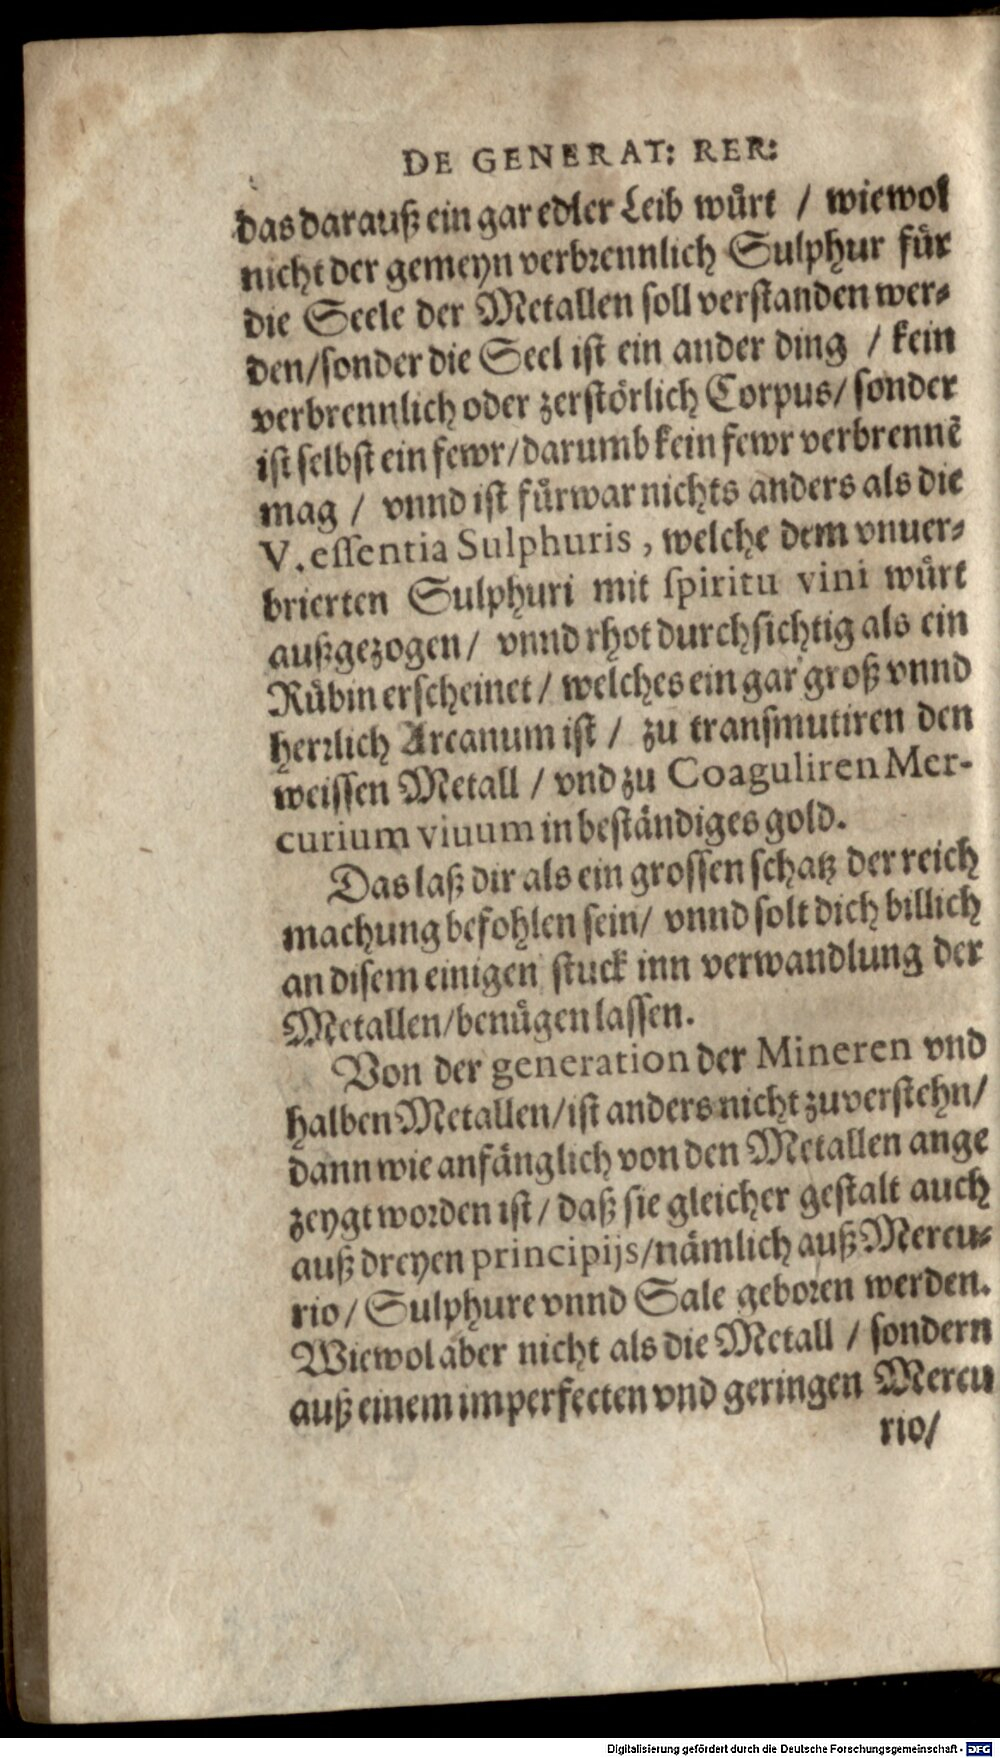 DE GENERAT: RER:
das darauß ein gar edler Leib wuͤrt / wiewol
nicht der gemeyn verbrennlich Sulphur fuͤr
die Seele der Metallen soll verstanden wer⸗
den/sonder die Seel ist ein ander ding / kein
verbrennlich oder zerstoͤrlich Corpus/ sonder
ist selbst ein fewr/darumb kein fewr verbrennẽ
mag / vnnd ist fuͤrwar nichts anders als die
V. essentia Sulphuris, welche dem vnuer⸗
brierten Sulphuri mit spiritu vini wuͤrt
außgezogen/ vnnd rhot durchsichtig als ein
Ruͤbin erscheinet / welches ein gar groß vnnd
herrlich Arcanum ist / zu transmutiren den
weissen Metall / vnd zu Coaguliren Mer-
curium viuum in bestaͤndiges gold.
Das laß dir als ein grossen schatz der reich
machung befohlen sein/ vnnd solt dich billich
an disem einigen stuck inn verwandlung der
Metallen/benuͤgen lassen.
Von der generation der Mineren vnd
halben Metallen/ist anders nicht zuverstehn/
dann wie anfaͤnglich von den Metallen ange
zeygt worden ist / daß sie gleicher gestalt auch
auß dreyen principijs/naͤmlich auß Mercu⸗
rio/ Sulphure vnnd Sale geboren werden.
Wiewol aber nicht als die Metall / sondern
auß einem imperfecten vnd geringen Mercu
rio/
Digitalisierung gefördert durch die Deutsche Forschungsgemeinschaft - DFG